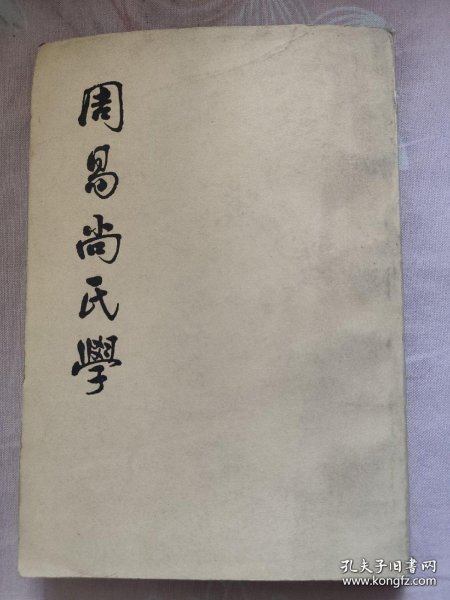 周易尚氏學
孔夫子旧书网
www.kongfz.com